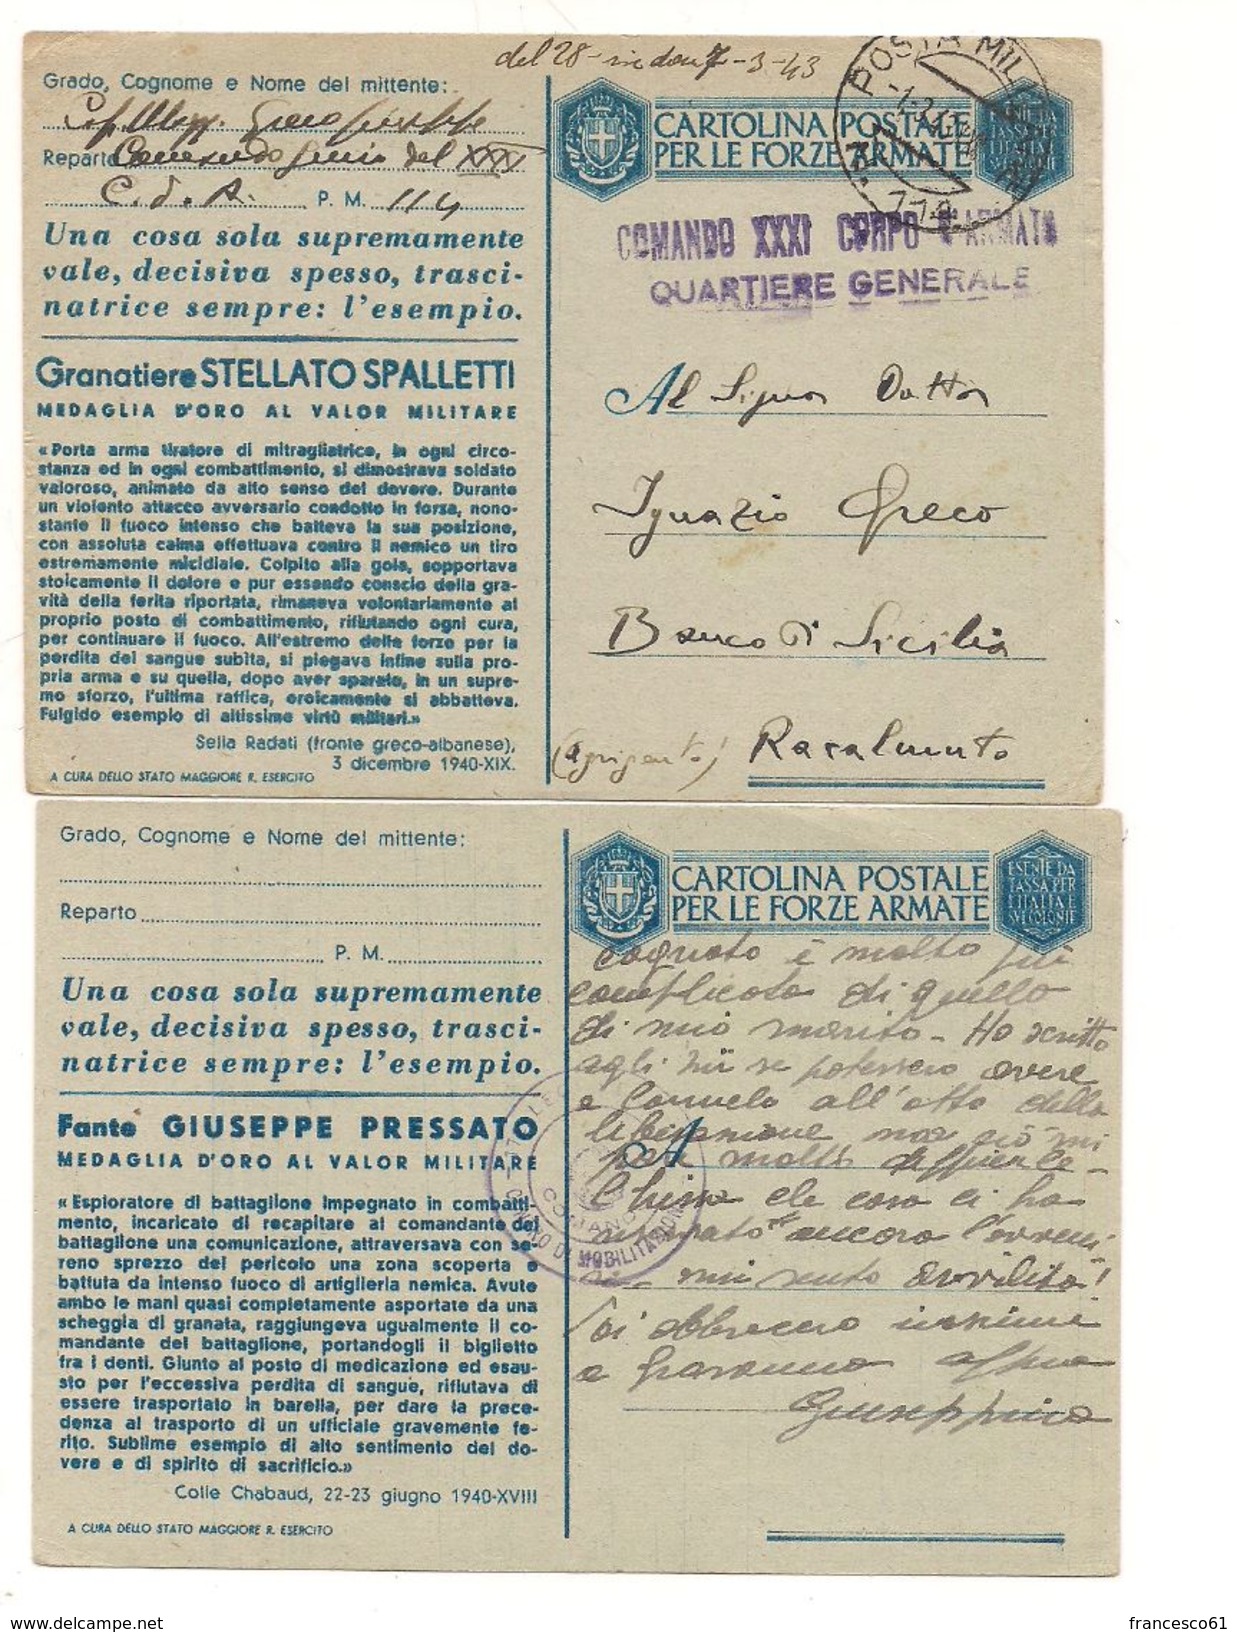 del 28- 7-3-43
Grado, Cognome e Nome del mittente:
Greco Giuseppe
Reparto Comando Genio del XXXI
C. d. A. P. M. 114
Una cosa sola supremamente
vale, decisiva spesso, trasci-
natrice sempre: l'esempio.
Granatiere STELLATO SPALLETTI
MEDAGLIA D'ORO AL VALOR MILITARE
«Porta arma tiratore di mitragliatrice, in ogni circo-
stanza ed in ogni combattimento, si dimostrava soldato
valoroso, animato da alto senso del dovere. Durante
un violento attacco avversario condotto in forza, nono-
stante il fuoco intenso che batteva la sua posizione,
con assoluta calma effettuava contro il nemico un tiro
estremamente micidiale. Colpito alla gola, sopportava
stoicamente il dolore e pur essendo conscio della gra-
vità della ferita riportata, rimaneva volontariamente al
proprio posto di combattimento, rifiutando ogni cura,
per continuare il fuoco. All'estremo delle forze per la
perdita del sangue subita, si piegava infine sulla pro-
pria arma e su quella, dopo aver sparato, in un supre-
mo sforzo, l'ultima raffica, eroicamente si abbatteva.
Fulgido esempio di altissime virtù militari.»
Sella Radati (fronte greco-albanese),
3 dicembre 1940-XIX.
A CURA DELLO STATO MAGGIORE R. ESERCITO
CARTOLINA POSTALE
PER LE FORZE ARMATE
POSTA MIL
COMANDO XXXI CORPO D'ARMATA
QUARTIERE GENERALE
Al Signor Dottor
Ignazio Greco
Banco di Sicilia
(Agrigento) Racalmuto
Grado, Cognome e Nome del mittente:
Reparto
P. M.
Una cosa sola supremamente
vale, decisiva spesso, trasci-
natrice sempre: l'esempio.
Fante GIUSEPPE PRESSATO
MEDAGLIA D'ORO AL VALOR MILITARE
«Esploratore di battaglione impegnato in combatti-
mento, incaricato di recapitare al comandante del
battaglione una comunicazione, attraversava con se-
reno sprezzo del pericolo una zona scoperta e
battuta da intenso fuoco di artiglieria nemica. Avute
ambo le mani quasi completamente asportate da una
scheggia di granata, raggiungeva ugualmente il co-
mandante del battaglione, portandogli il biglietto
fra i denti. Giunto al posto di medicazione ed esau-
sto per l'eccessiva perdita di sangue, rifiutava di
essere trasportato in barella, per dare la prece-
denza al trasporto di un ufficiale gravemente fe-
rito. Sublime esempio di alto sentimento del do-
vere e di spirito di sacrificio.»
Colle Chabaud, 22-23 giugno 1940-XVIII
A CURA DELLO STATO MAGGIORE R. ESERCITO
CARTOLINA POSTALE
PER LE FORZE ARMATE
ESENTE DA
TASSA PER
L'ITALIA E
SUE COLONIE
COMANDO
CENTRO DI MOBILITAZIONE
A
cognato è molto più
complicata di quello
di mio marito - Ho scritto
agli zii se potessero avere
a Carmela all'atto della
liberazione ma ciò mi
pare molto difficile -
Chissà che cosa ci ha
ancora l'avveni-
re mi sento avvilita!
Vi abbraccio insieme
a Giovanna
Giuseppina
francesco61